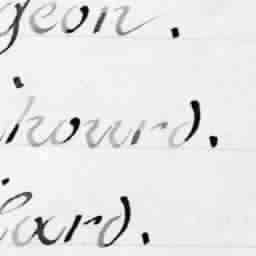 geon.
kourd.
Card.